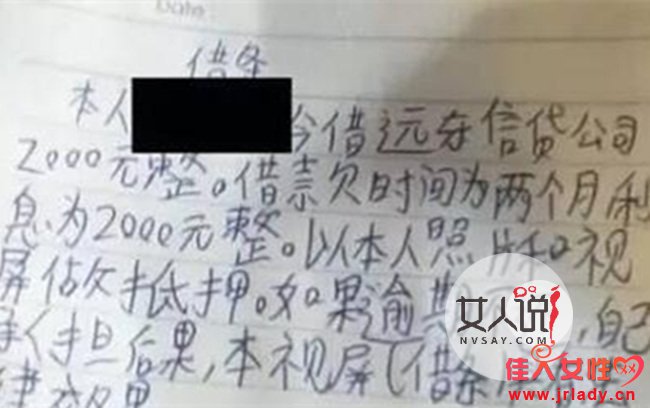 Date
借条
本人 今借远东信贷公司
2000元整。借款欠时间为两个月利
息为2000元整。以本人照片和视
屏做抵押。如果逾期 ,自己
承担后果,本视屏(借条
女人说
NVSAY.COM
佳人女性网
www.jrlady.cn